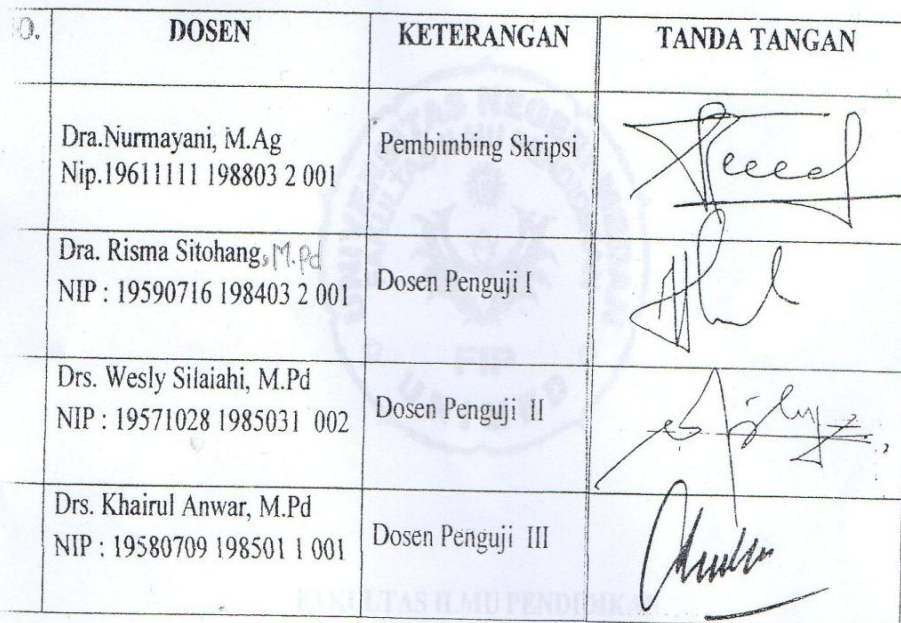 O. DOSEN KETERANGAN TANDA TANGAN
Dra.Nurmayani, M.Ag
Nip.19611111 198803 2 001
Pembimbing Skripsi
Dra. Risma Sitohang, M.Pd
NIP : 19590716 198403 2 001
Dosen Penguji I
Drs. Wesly Silaiahi, M.Pd
NIP : 19571028 1985031 002
Dosen Penguji II
Drs. Khairul Anwar, M.Pd
NIP : 19580709 198501 1 001
Dosen Penguji III
UNIVERSITAS NEGERI MEDAN
FAKULTAS ILMU PENDIDIKAN
FIP
UNIMED
FAKULTAS ILMU PENDIDIKAN